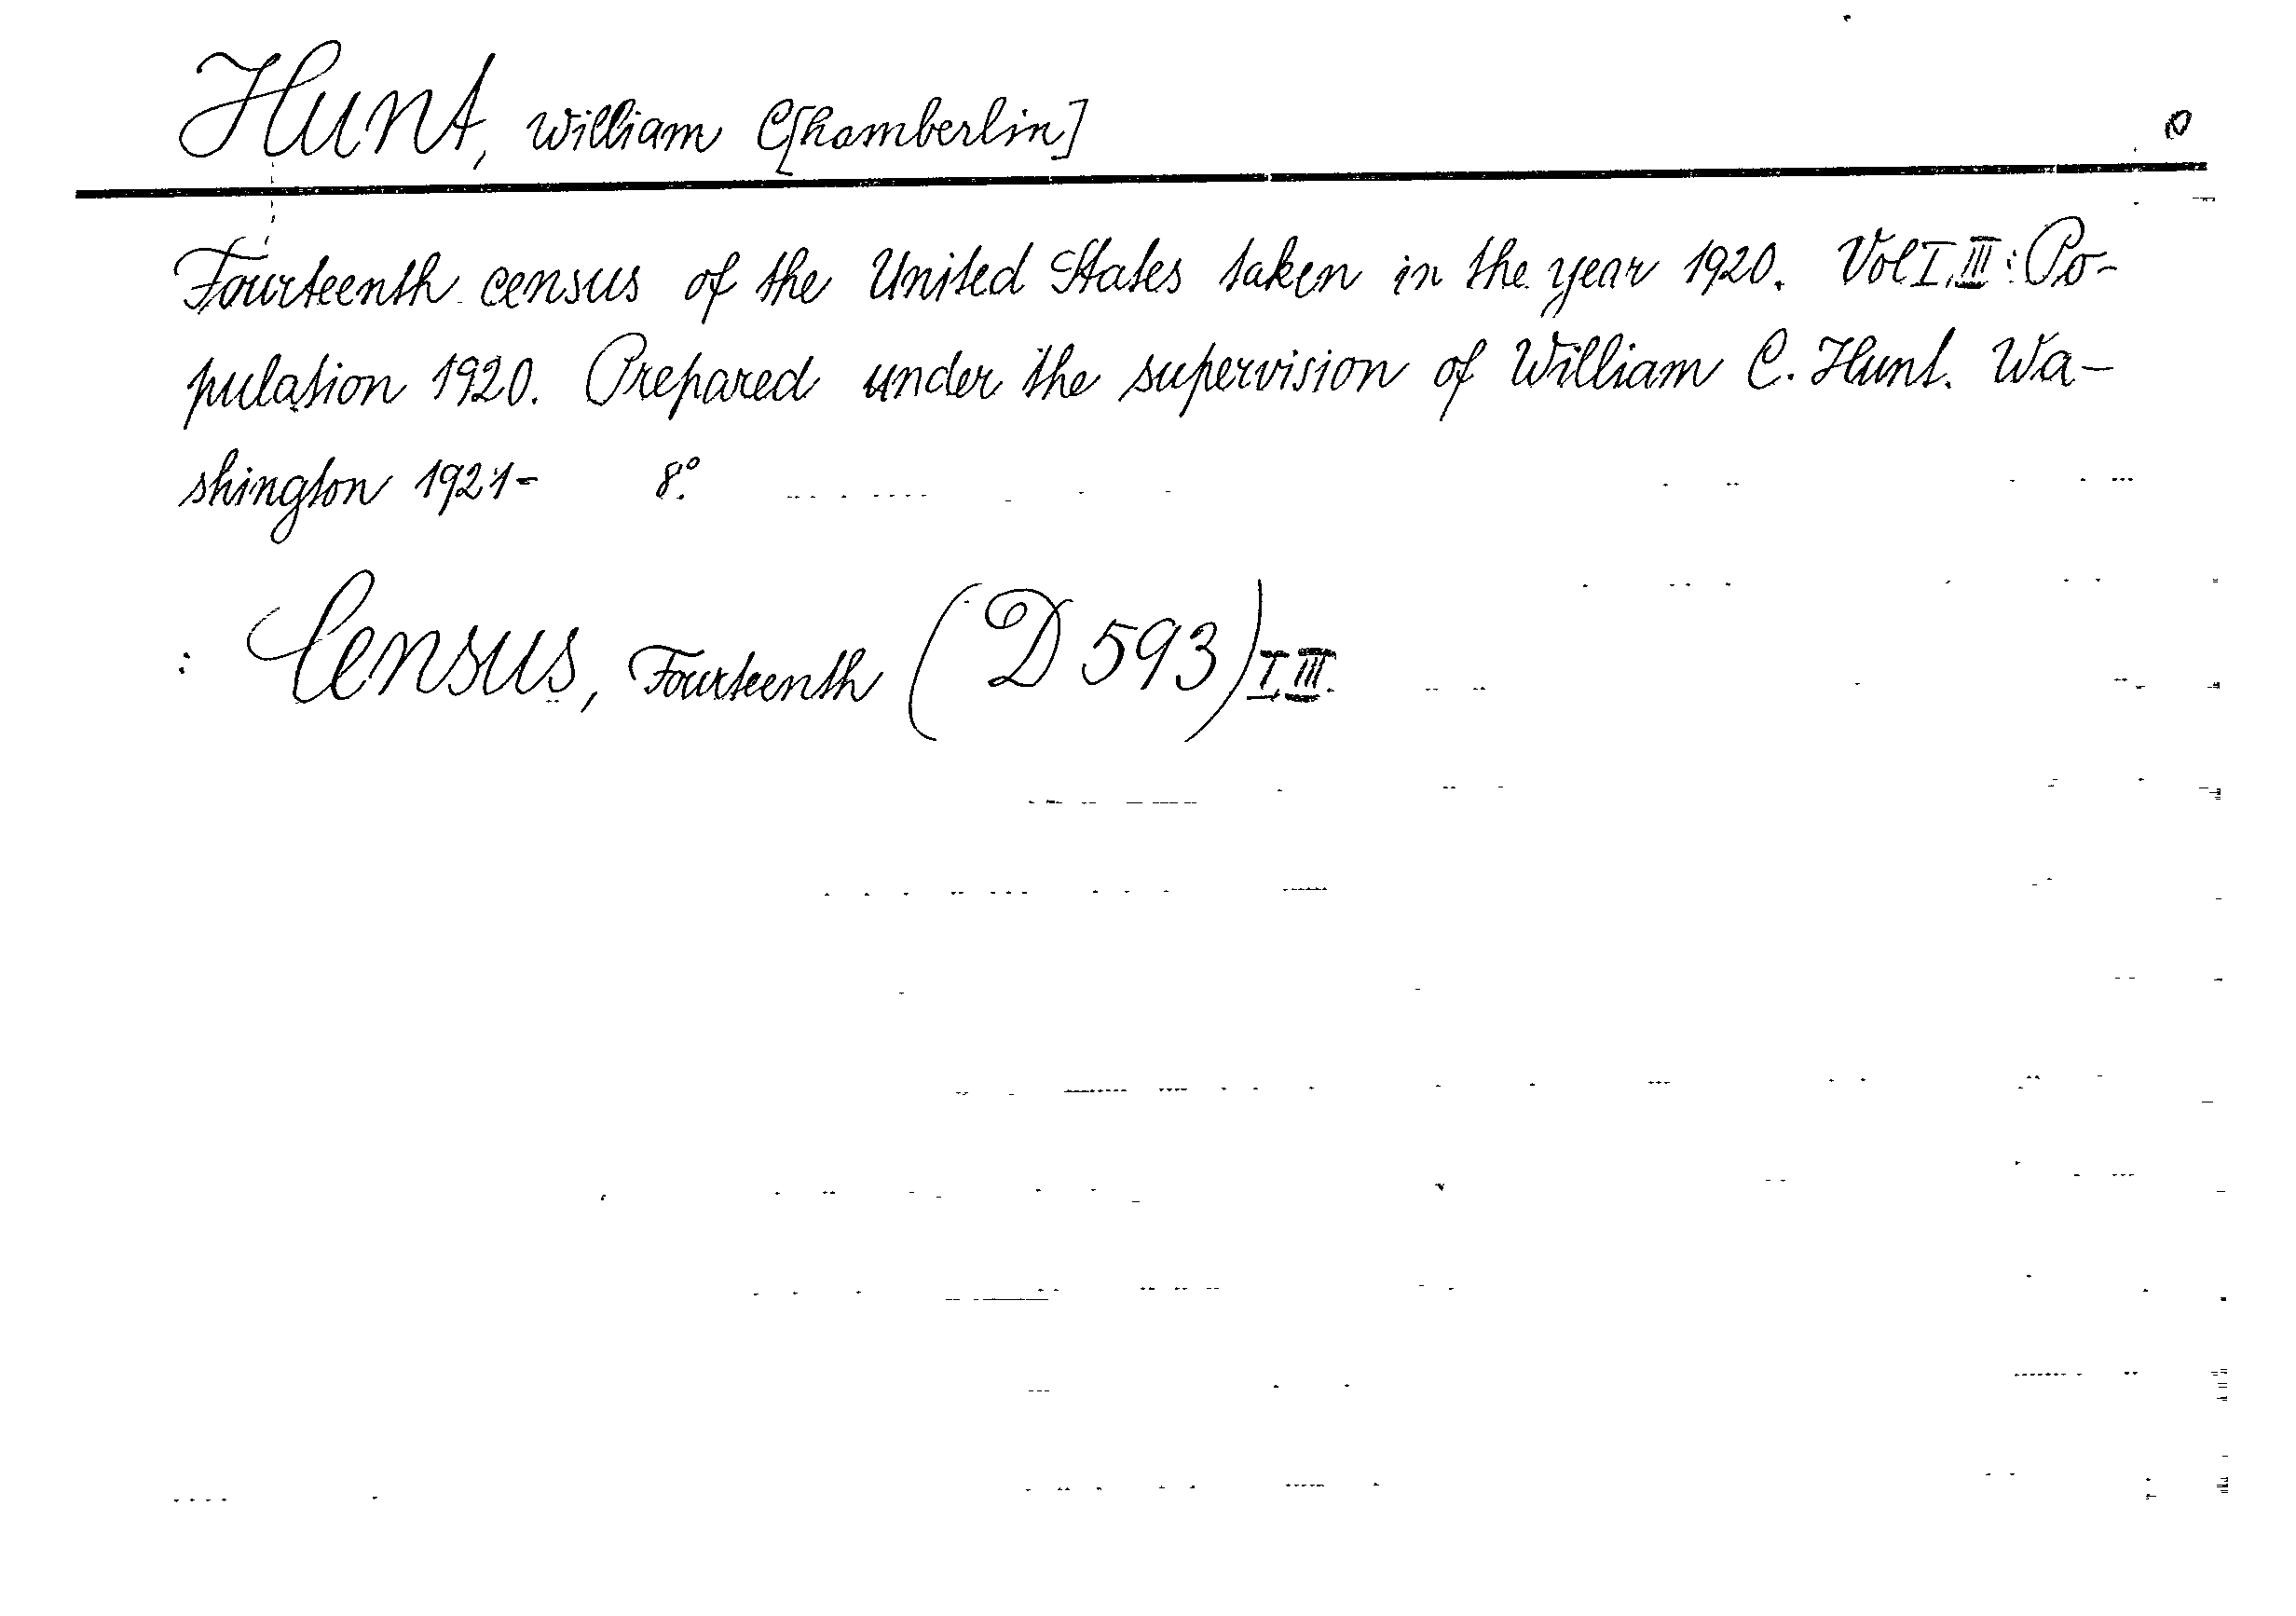 Hunt, William C[hamberlin]
Fourteenth census of the United States taken in the year 1920. Vol I, III: Po-
pulation 1920. Prepared under the supervision of William C. Hunt. Wa-
shington 1921- 8°.
: Census, Fourteenth (D 593) I, III.